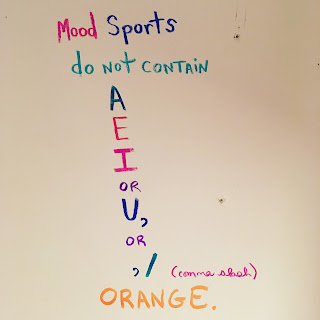 Mood Sports
do NOT CONTAIN
A
E
I
OR
U,
OR
,/ (comma slash)
ORANGE.